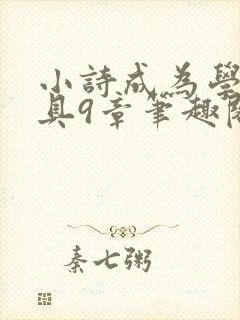 小詩成為學
具9章筆趣閣
秦七粥